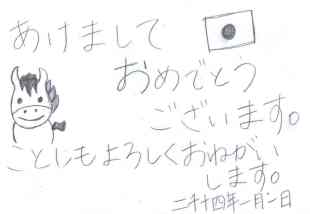 あけまして
おめでとう
ございます。
ことしもよろしくおねがい
します。
二千十四年一月一日